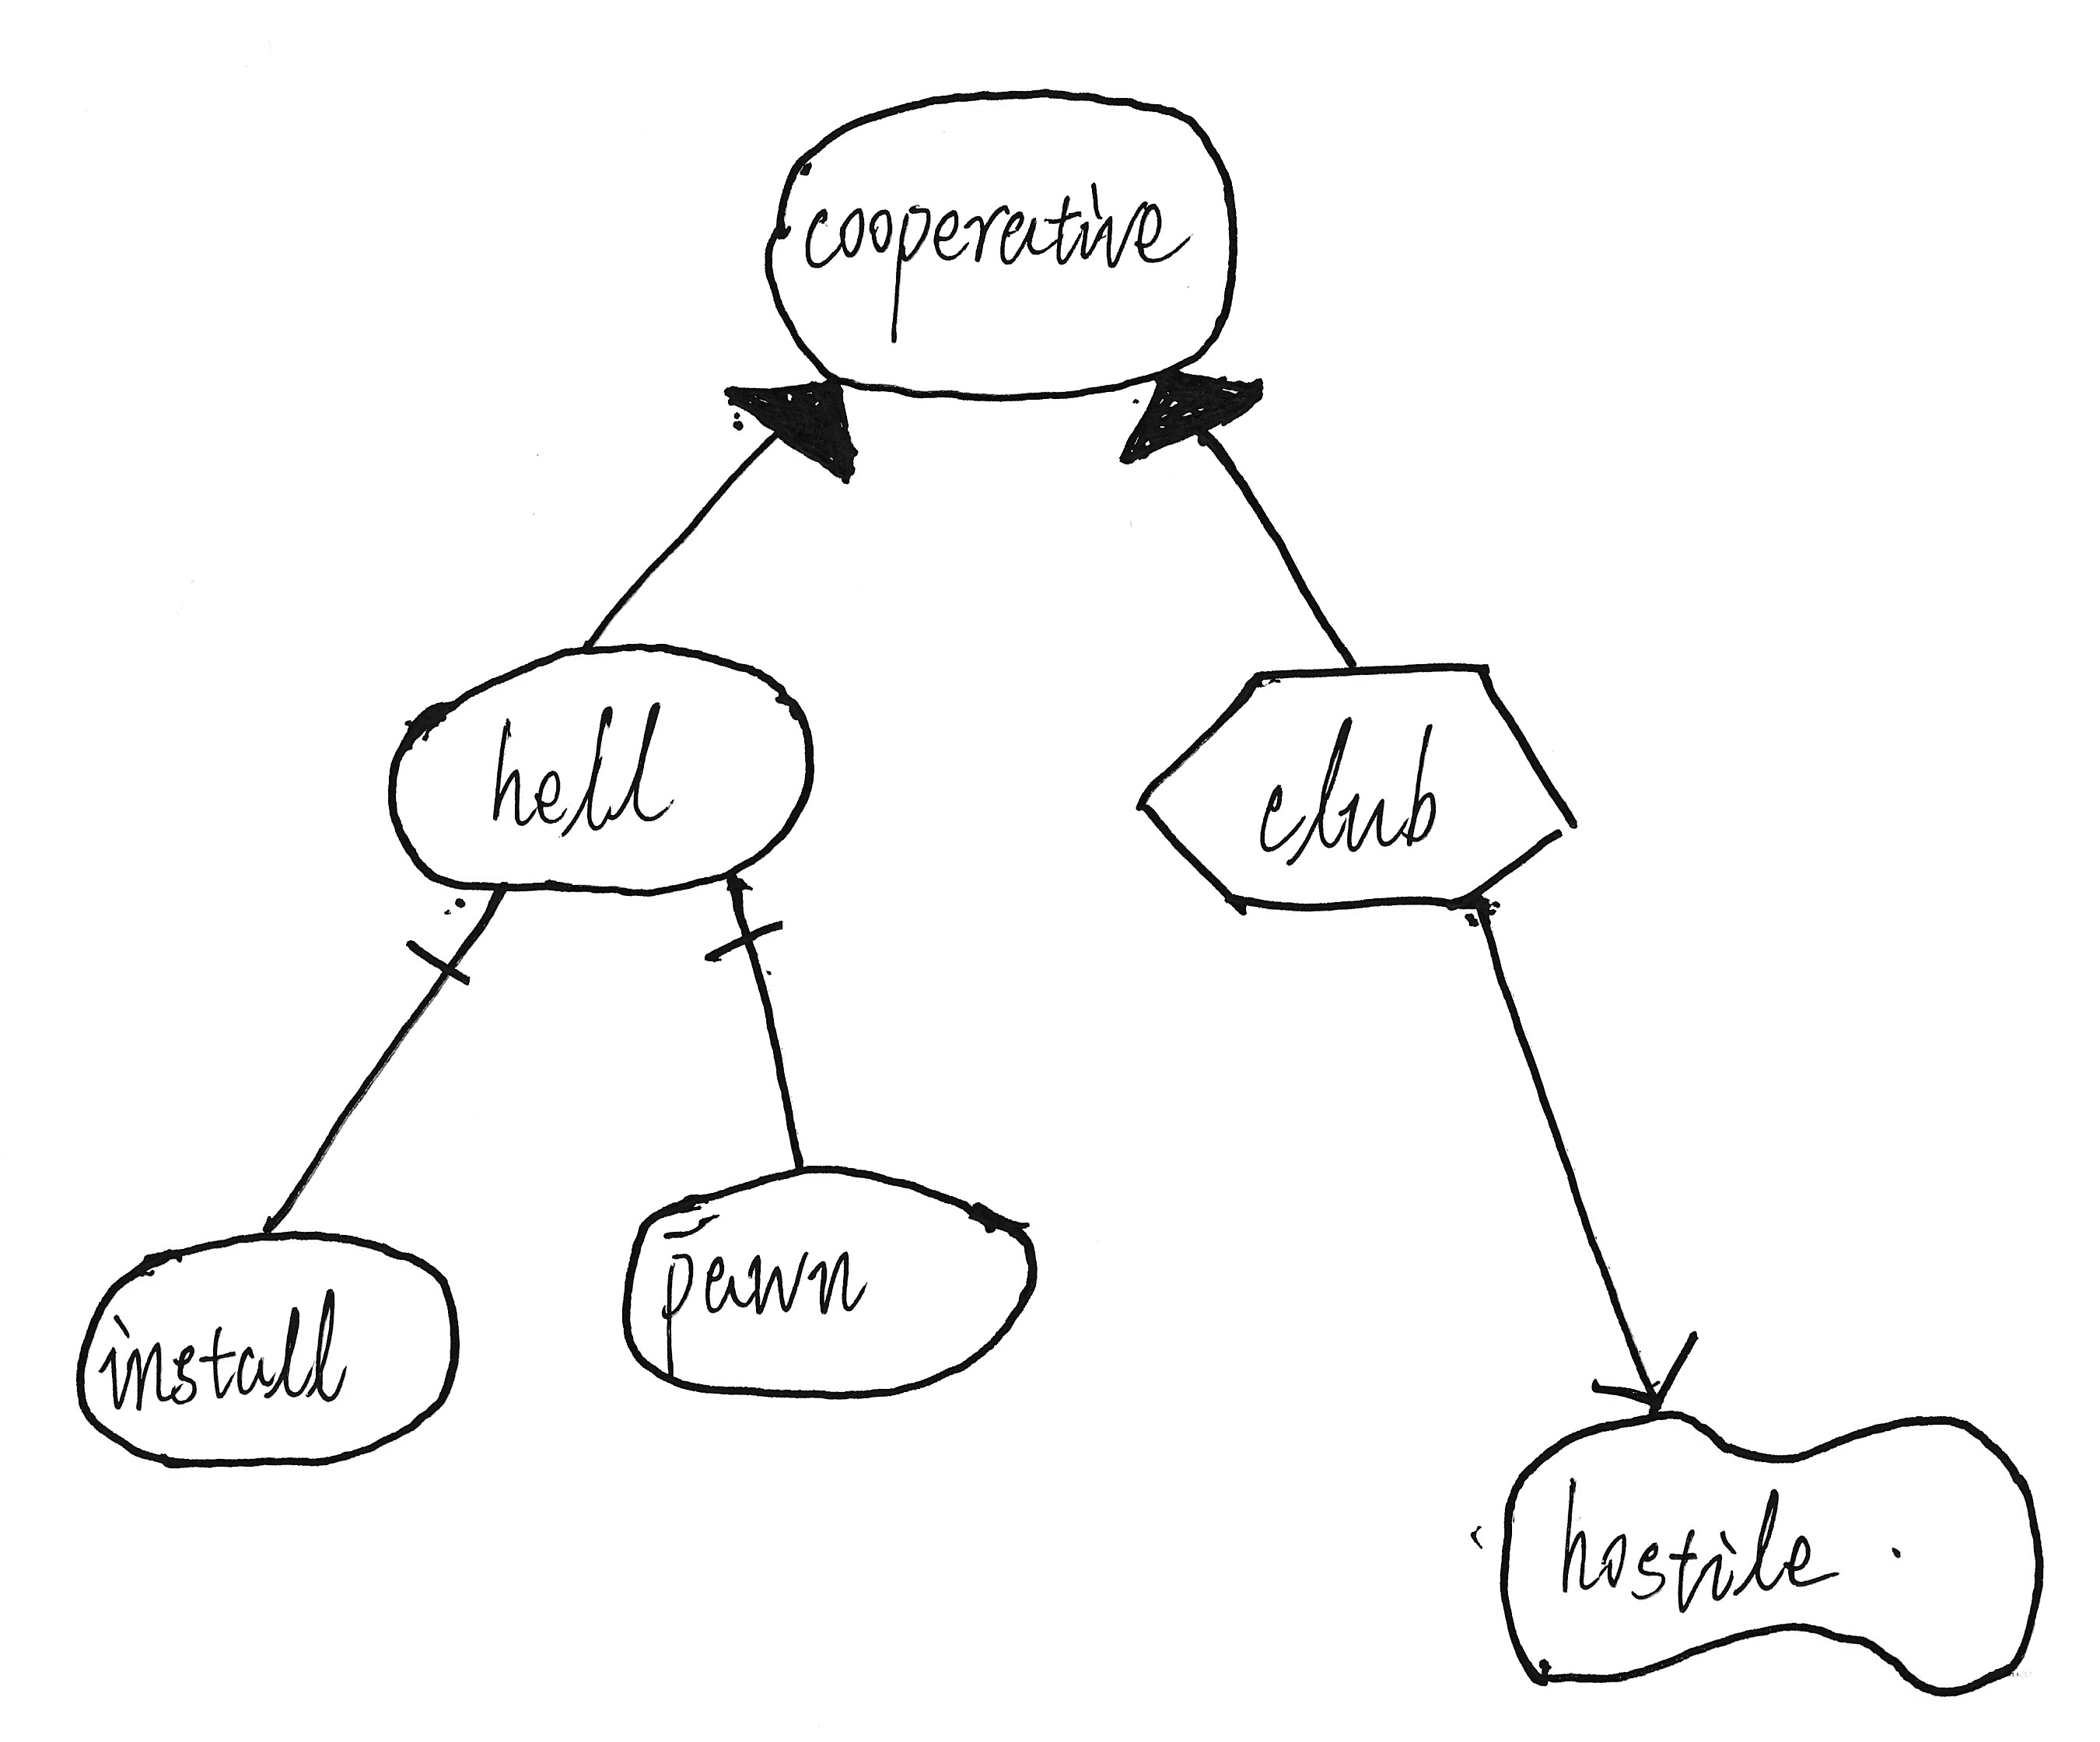 cooperative
hell
club
install
pawn
hostile